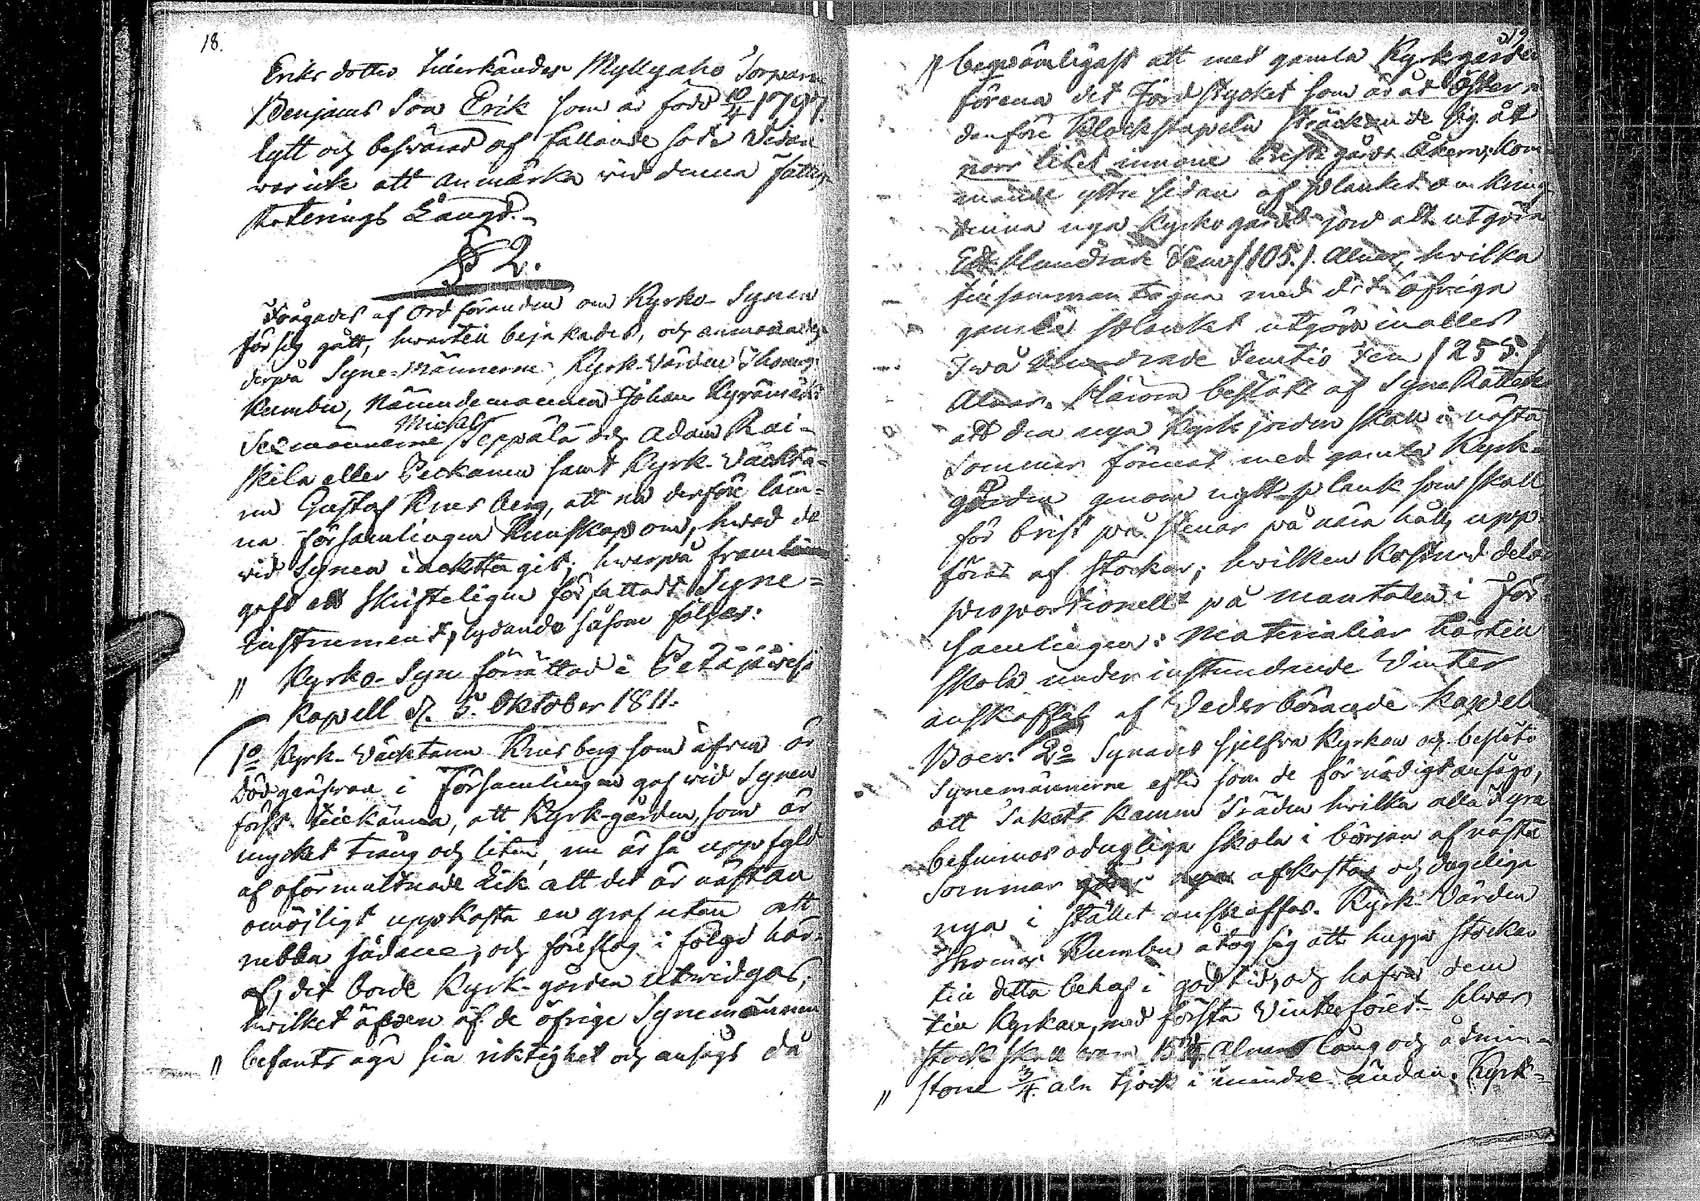 18.
Eriks dotter tillerkändes Myllyaho Torpare
Benjams Son Erik som är född 10/4 1797.
lytt och besvärad af fallande sot. Vidare
var icke att anmärka vid denna
Längd.
§ 2.
Frågades af Ordföranden om Kyrko-Synen
för sig gått, hvartill bejakades, och anmodades
derpå Syne-Männerne, Kyrk-Värden Thomas
Kumbu, Nämndemannen Johan
Sexmännerne Michels Seppälä och Adam Rai-
skila eller Peckanen samt Kyrk-Väckta-
ren Gustaf Knersberg, att nu derföre läm-
na församlingen kunskap om, hvad de
vid Synen iakttagit, hvarpå fram
gafs ett skrifteligen författadt Syne-
Instrument, lydande såsom följer:
" Kyrko-Syn förrättad i Petäjävesi
Kapell d. 5. Oktober 1811.
1o Kyrk-Väcktaren Knersberg som äfven är
Dödgräfvare i Församlingen gaf vid Synen
först tillkänna, att Kyrk-gården, som är
mycket trång och liten, nu är så uppfyld
af oförmultnade Lik att det är nästan
omöjligt uppkasta en graf utan att
rubba sådane, och föreslog i följe här-
af, det borde Kyrk-gården utvidgas,
hvilket äfven af de öfrige Synemännen
" befants äga sin riktighet och ansågs då
19.
" beqvämligast att med gamla Kyrkgården
förena det Jord stycket som är åt Öster
danföre Klockstapeln sträckande sig åt
norr litet innom Prästgårds Åkern, kom
mande yttre sidan af planket om kring
denna nya Kyrkogårds jord att utgöra
Ett Hundrade Fem (105.) Alnar, hvilka
tillsamman tagna med det öfriga
gamla planket utgöra inalles
Två Hundrade Femtio Fem (255.)
Alnar. Härom beslöts af Syne Rätten
att den nya Kyrkjorden skall i nästa
Sommar förenas med gamla Kyrk-
gården genom nytt plank som skall
för brist på stenar på nära håll, upp-
föras af stockar; hvilken kostnad delas
proportionellt på mantalen i För-
samlingen: Materialier härtill
skola under instundande Vinter
anskaffas af Vederbörande Kapell
Boer. 2o Synades sjelfva Kyrkan och beslöto
Synemännerne efter som de för nödigt ansågo,
att Takets kamm Träden hvilka alla Fyra
befunnos odugliga skola i början af nästa
Sommar afkastas och dugeliga
nya i stället anskaffas. Kyrk-Värden
Thomas Kumbu åtog sig att hugga stockar
till detta behof i god tid, och hafva dem
till Kyrkan, med första Vinterföret. Hvar
stock skall vara Alnar lång och åtmin-
" stone 3/4 aln tjock i mindre ändan. Kyrk-